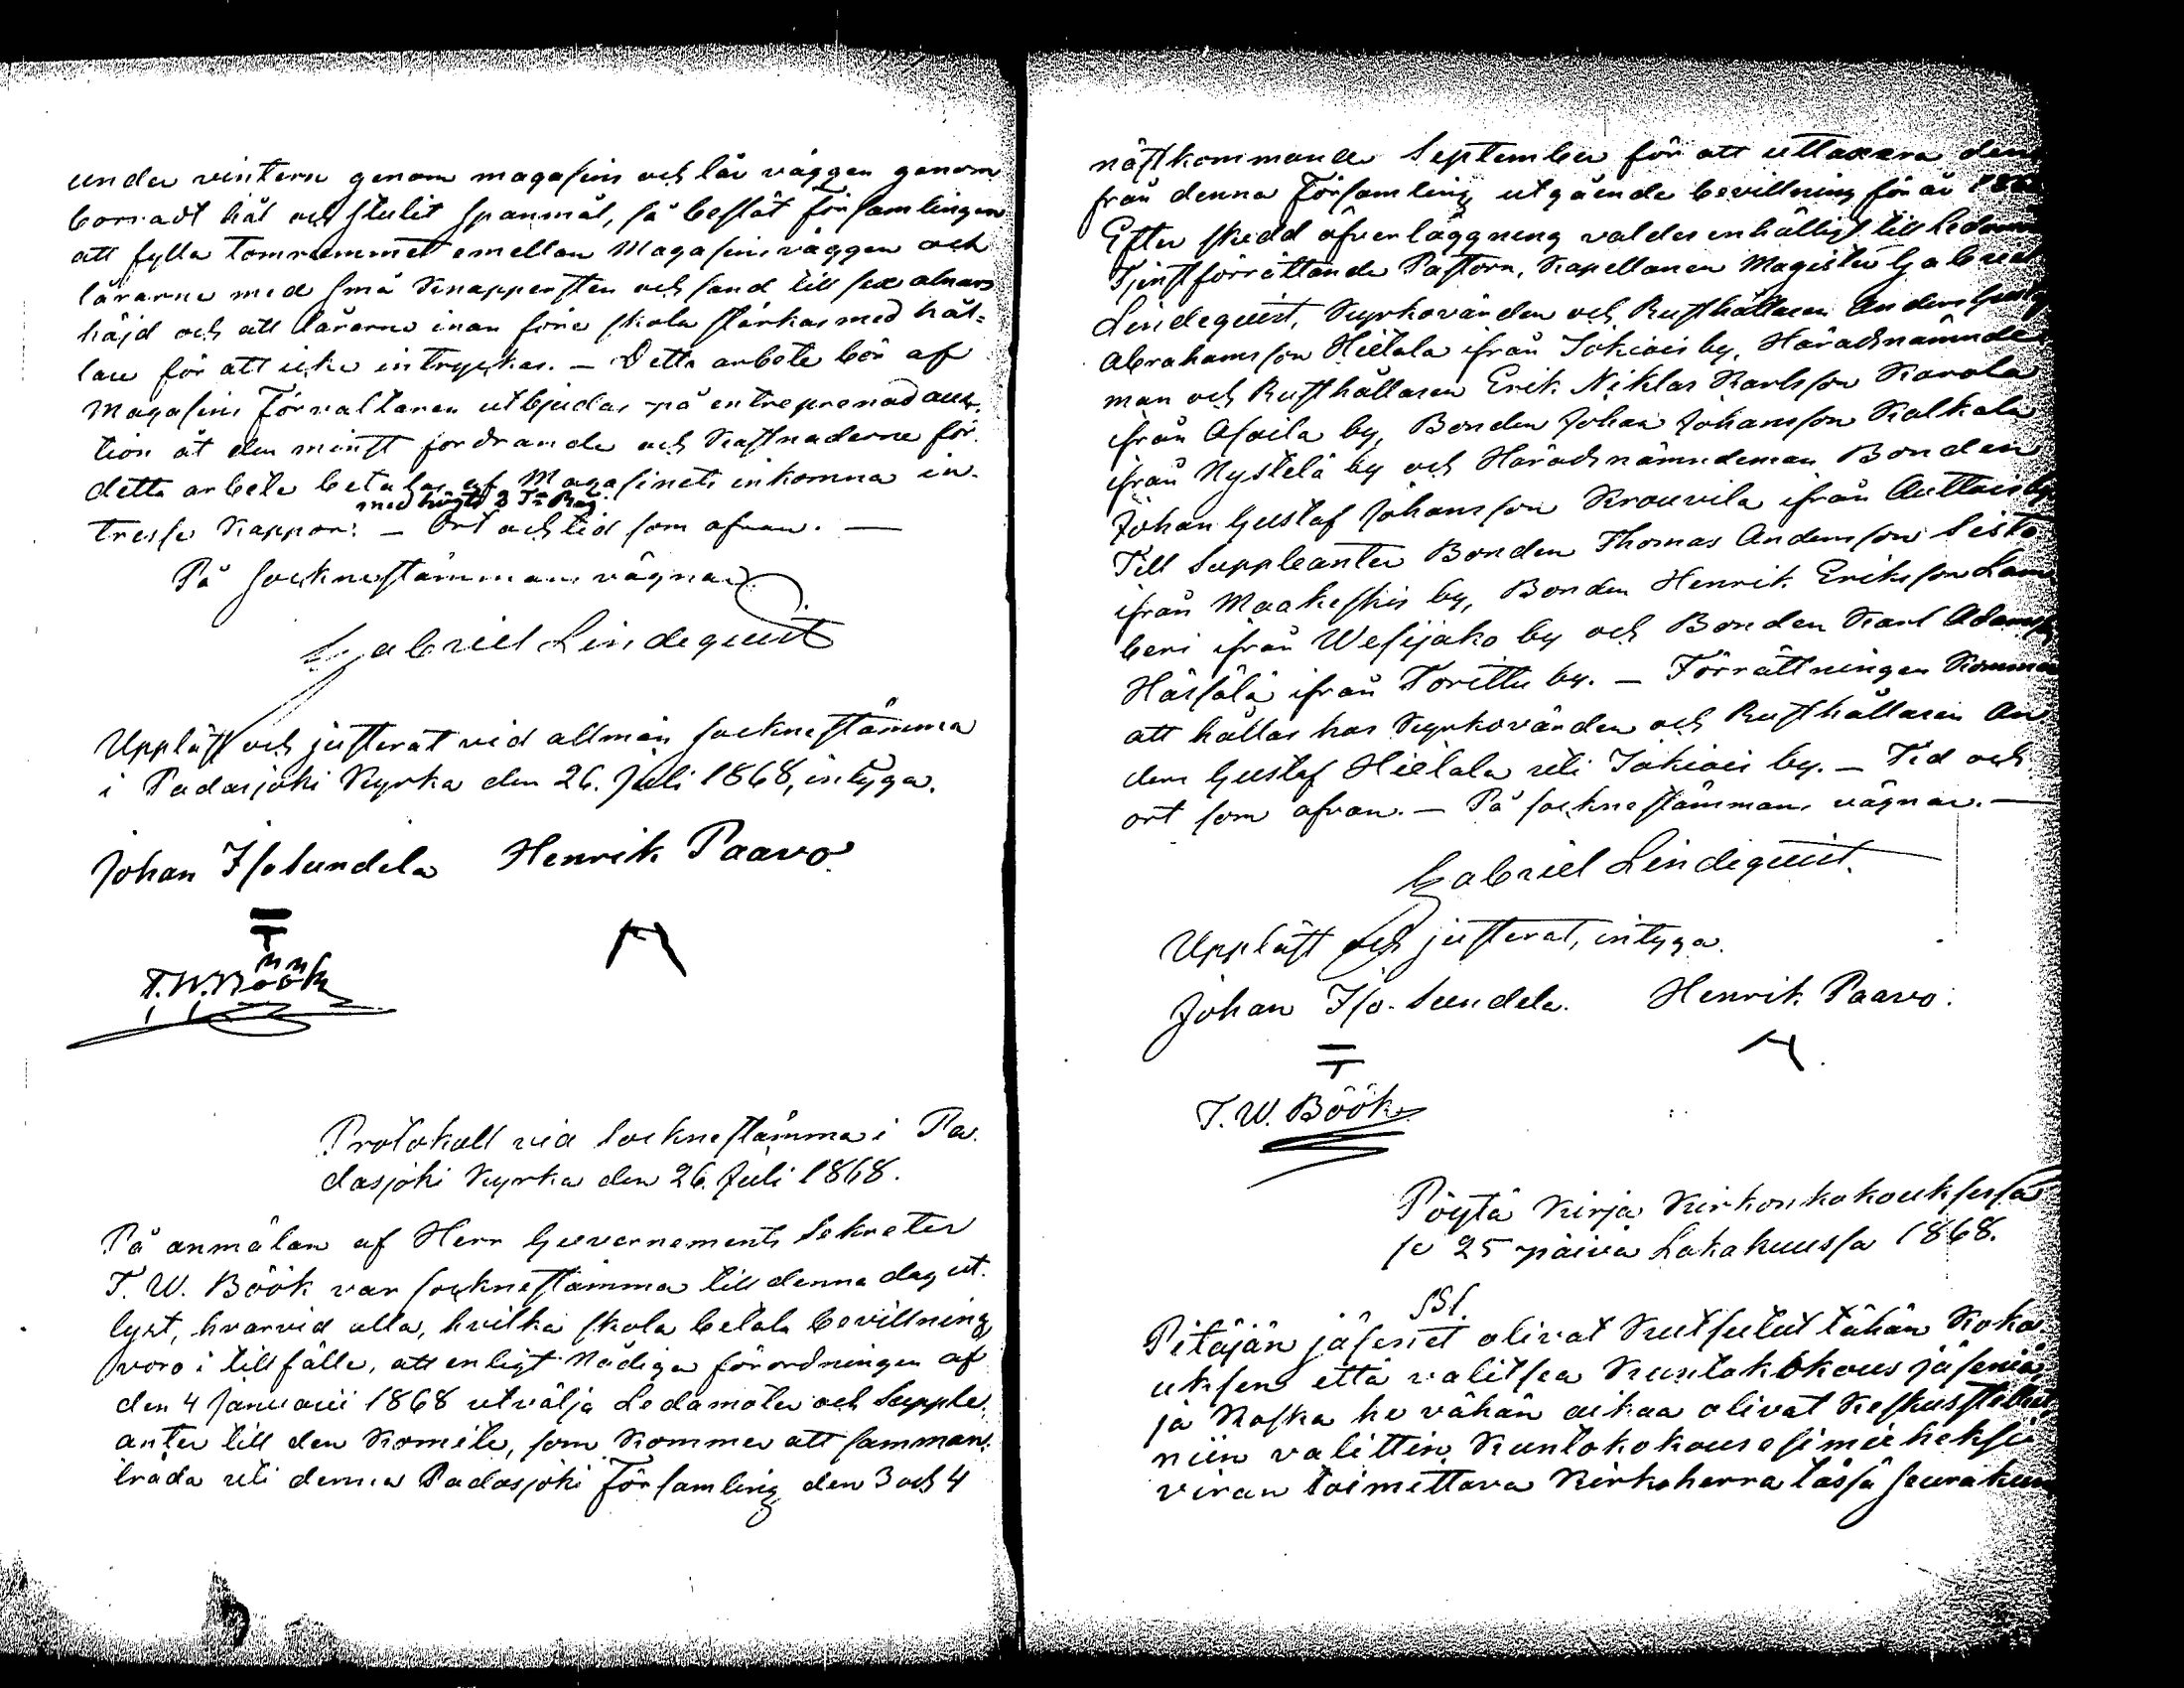 under vintern genom magasins och lår väggen genom
borradt hål och stulit spanmål, så beslöt församlingen
att fylla tomrummet emellan Magasins väggen och
lårarne med små Knappersten och sand till sex alnars
häjd och att lårarne inan före skola stärkas med hål-
lare för att icke intryckas. — Detta arbete bör af
Magasins Förvaltaren utbjudas på entreprenad auk-
tion åt den minst fordrande och Kostnaderne för
detta arbete betalas af Magasinets inkomna in-
med högst 3 T:r Råg
tresse Kappor: — Ort och tid som ofvan. —
På Socknestämmans vägnar
Gabriel Lindequist
Uppläst och justerat vid allmän socknestämma
i Padasjoki Kyrka den 26. Juli 1868, intyga.
Johan Isosundela Henrik Paavo.
T. W. Böök
Protokoll vid Socknestämma i Pa-
dasjoki Kyrka den 26. Juli 1868.
På anmälan af Herr Guvernements Sekreter
T. W. Böök var socknestämma till denna dag ut-
lyst, hvarvid alla, hvilka skola betala bevillning
voro i tillfälle, att enligt Nådiga förordningen af
den 4 Januarii 1868 utvälja Ledamöter och Supple-
anter till den Komite, som kommer att samman-
träda uti denna Padasjoki Församling den 3 och 4
nästkommande September för att uttaxera den
från denna Församling utgående bevillning för år
Efter skedd öfverläggning valdes enhälligt till
Tjenstförrättande Pastorn, Kapellanen Magister Gabriel
Lindequist, Kyrkovärden och Rusthållaren Anders Gustaf
Abrahamsson Hietala ifrån Jokiois by, Häradsnämnde-
man och Rusthållaren Erik Niklas Karlsson Karola
ifrån Osoila by, Bonden Johan Johansson Kalkala
ifrån Nystelä by och Häradsnämndeman Bonden
Johan Gustaf Johansson Krouvila ifrån Auttois by
Till Suppleanter Bonden Thomas Andersson Sisto
ifrån Maakeskis by, Bonden Henrik Eriksson Lam-
beri ifrån Wesijako by och Bonden Karl Adamss
Härsälä ifrån Torittu by. — Förrättningen Kommer
att hållas hos Kyrkovärden och Rusthållaren An-
ders Gustaf Hietala uti Jokiois by. — Tid och
ort som ofvan. — På socknestämmans vägnar. —
Gabriel Lindequist.
Uppläst och justerat, intyga.
Johan Iso-Sundela. Henrik Paavo.
T. W. Böök
Pöytä Kirja Kirkonkokouksessa
se 25 päivä Lokakuussa 1868.
§ 1.
Pitäjän jäsenet olivat Kutsutut tähän Koko-
uksen että valitsea Kuntakokous jäseniä,
ja Koska he vähän aikaa olivat Keskustellu
niin valittin Kuntakokous esimieheksi
viran toimittava Kirkoherra tässä seurakun